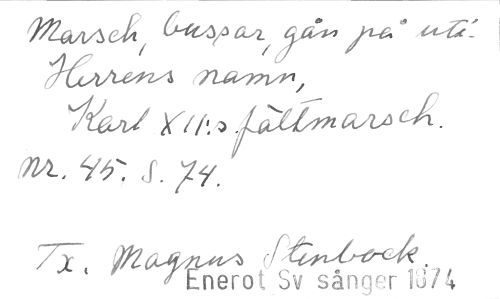 Marsch, bussar, gån på uti
Herrens namn,
Karl XII:s fältmarsch.
nr. 45. S. 74.
Tx. Magnus Stenbock.
Enerot Sv sånger 1874